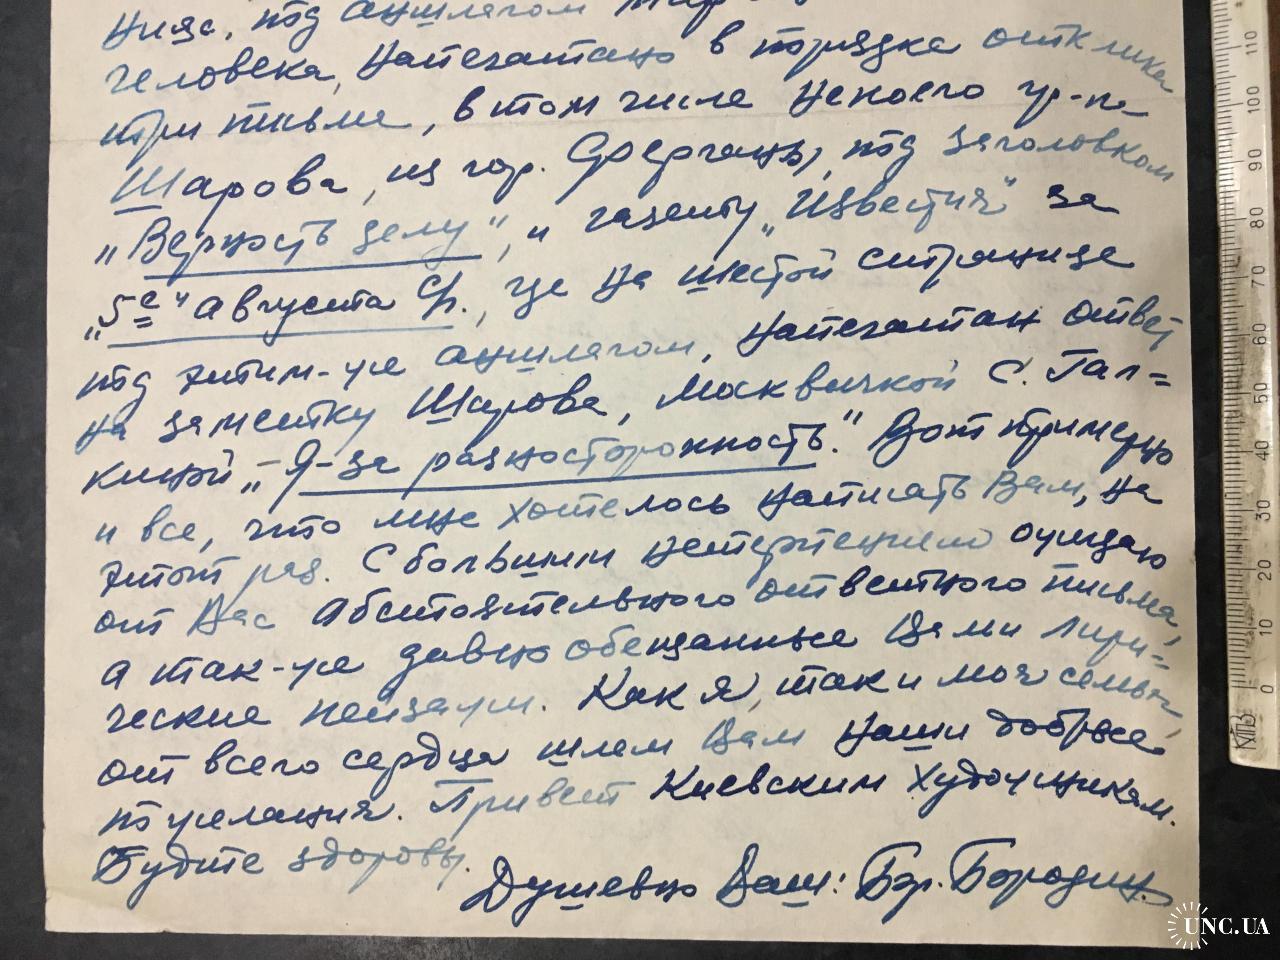 ция, под аншлагом
человека, напечатано в порядке отклика
три письма, в том числе некоего гр-на
Шарова, из гор. Ферганы, под заголовком
„Верность делу", и газету „Известия" за
„5е" августа с/г., где на шестой странице
под этим-же аншлагом, напечатан ответ
на заметку Шарова, москвичкой С. Гал=
киной „– Я-за разносторонность." Вот примерно
и все, что мне хотелось написать Вам, на
этот раз. С большим нетерпением ожидаю
от Вас абстоятельного ответного письма,
а так-же давно обещанные Вами лири=
ческие пейзажи. Как я, так и моя семья,
от всего сердца шлем Вам наши добрые
пожелания. Привет Киевским Художникам.
Будте здоровы.
Душевно Ваш: Бор. Бородин.
110 100 90 80 70 60 50 40 30 20 10 0
UNC.UA